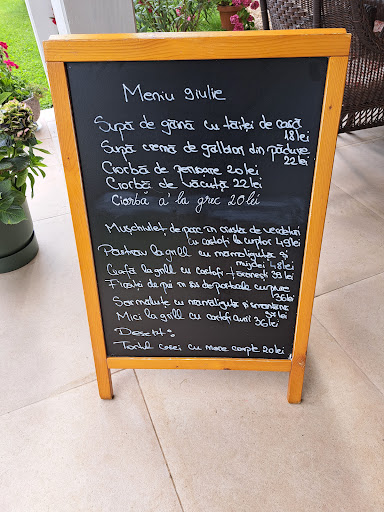 Meniu giulie
Supă de găină cu tăiței de casă
18 lei
Supă cremă de galbiori din pădure
22 lei
Ciorbă de perisoare 20 lei
Ciorbă de văcuță 22 lei
Ciorbă a' la grec 20 lei
Muschiuleț de porc în crusta de verdeturi
cu cartofi la cuptor 49 lei
Pastrav la grill cu mamaliguta și
mujdei 48 lei
Ceafă la grill cu cartofi + 39 lei
Fripte de pui in sos de portocale cu piure
36 lei
Sarmalute cu mamăliguta si smantana
38 lei
Mici la grill cu cartofi aurii 36 lei
Desert:
Tartul casei cu mere coapte 20 lei